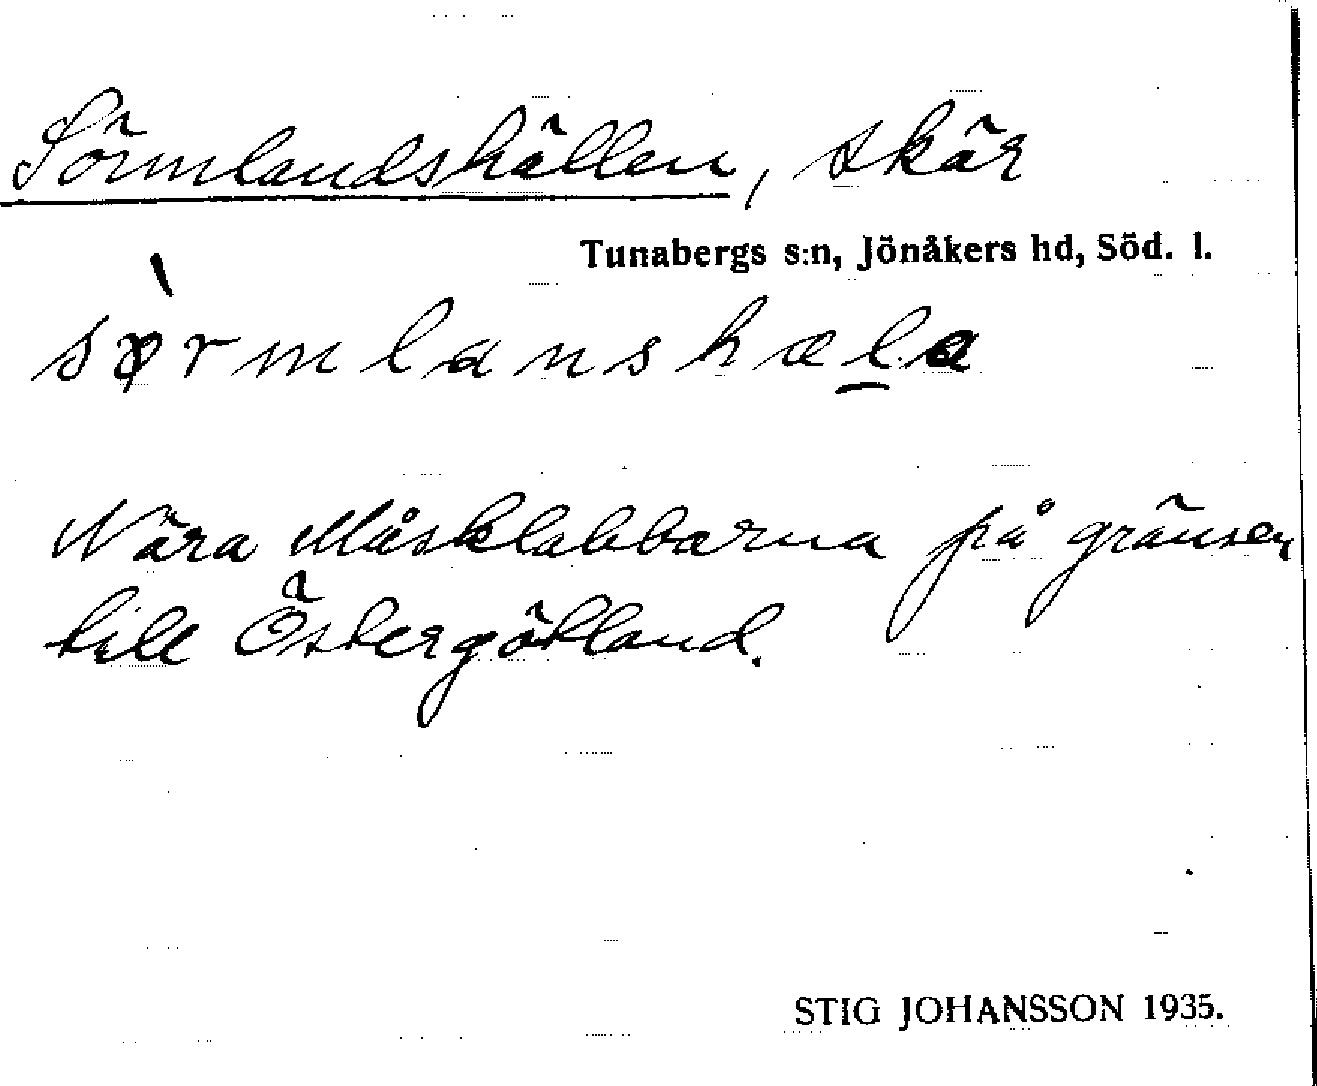 Sörmlandshällen, skär
Tunabergs s:n, Jönåkers hd, Söd. l.
sø̀rmlanshæl̲a
Nära Måsklabbarna på gränsen
till Östergötland.
STIG JOHANSSON 1935.